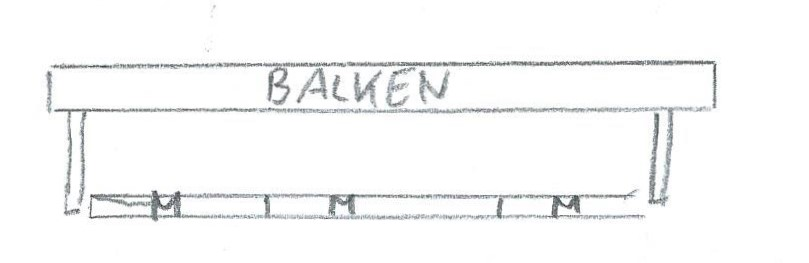 BALKEN
M M M